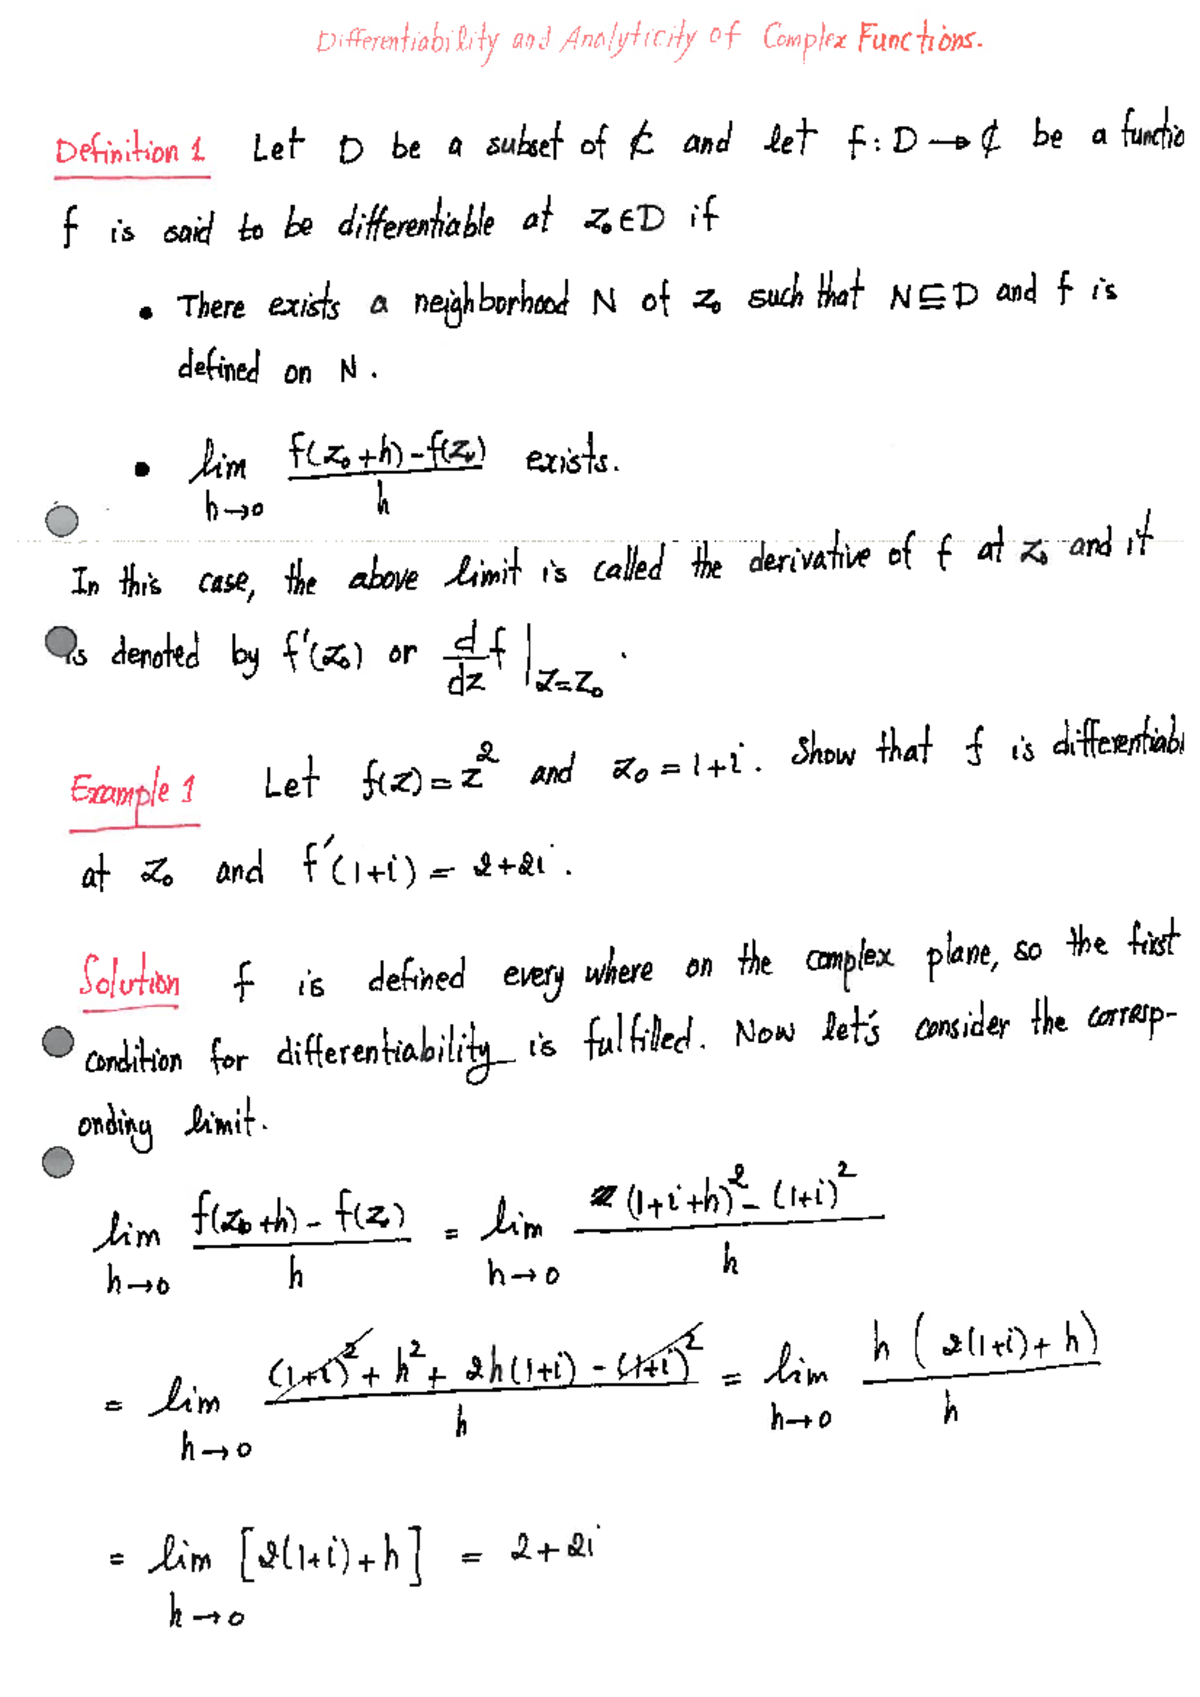 Differentiability and Analyticity of Complex Functions.
Definition 1 Let D be a subset of ₵ and let f: D → ₵ be a functio
f is said to be differentiable at z₀ ∈ D if
• There exists a neighborhood N of z₀ such that N ⊆ D and f is
defined on N.
• lim h→0 (f(z₀+h) - f(z₀))/h exists.
In this case, the above limit is called the derivative of f at z₀ and it
is denoted by f'(z₀) or d/dz f |z=z₀ .
Example 1 Let f(z) = z² and z₀ = 1+i. Show that f is differentiabl
at z₀ and f'(1+i) = 2+2i.
Solution f is defined every where on the complex plane, so the first
condition for differentiability is fulfilled. Now let's consider the corresp-
onding limit.
lim h→0 (f(z₀+h) - f(z₀))/h = lim h→0 ((1+i+h)² - (1+i)²)/h
= lim h→0 ((1+i)² + h² + 2h(1+i) - (1+i)²)/h = lim h→0 h(2(1+i)+h)/h
= lim h→0 [2(1+i)+h] = 2+2i